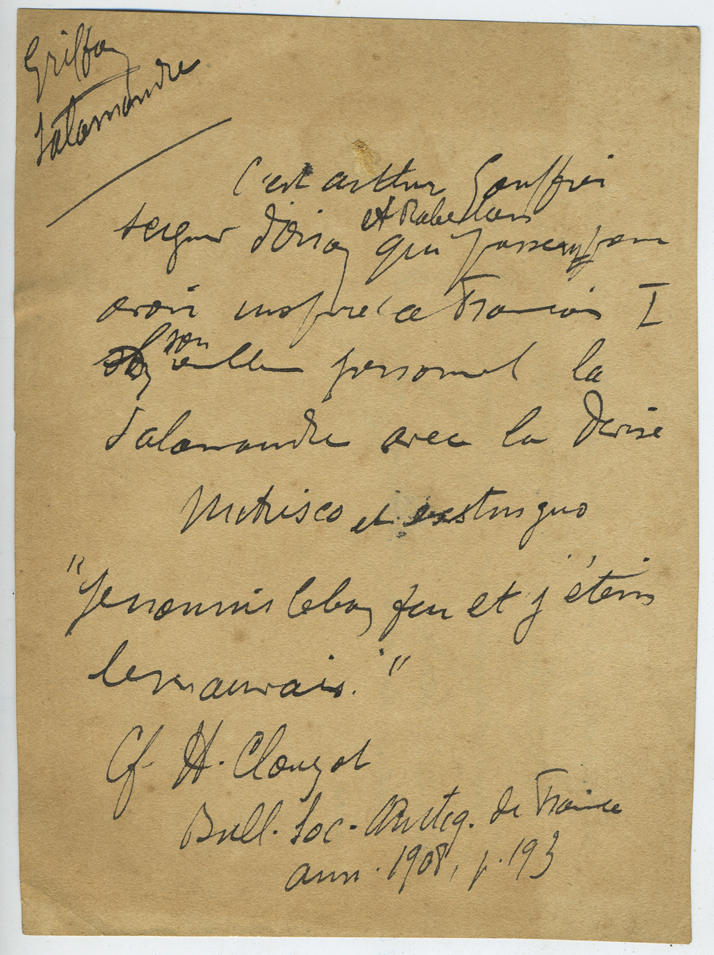 Griffon
Salamandre
C'est Arthur Gouffier
et Rabelais
seigneur d'Oiron qui passent pour
avoir inspiré à François I
son
emblème personnel la
Salamandre avec la devise
Nutrisco et exstinguo
"Je nourris le bon feu et j'éteins
le mauvais."
Cf. H. Clouzot
Bull. Soc. Antiq. de France
ann. 1908, p. 193